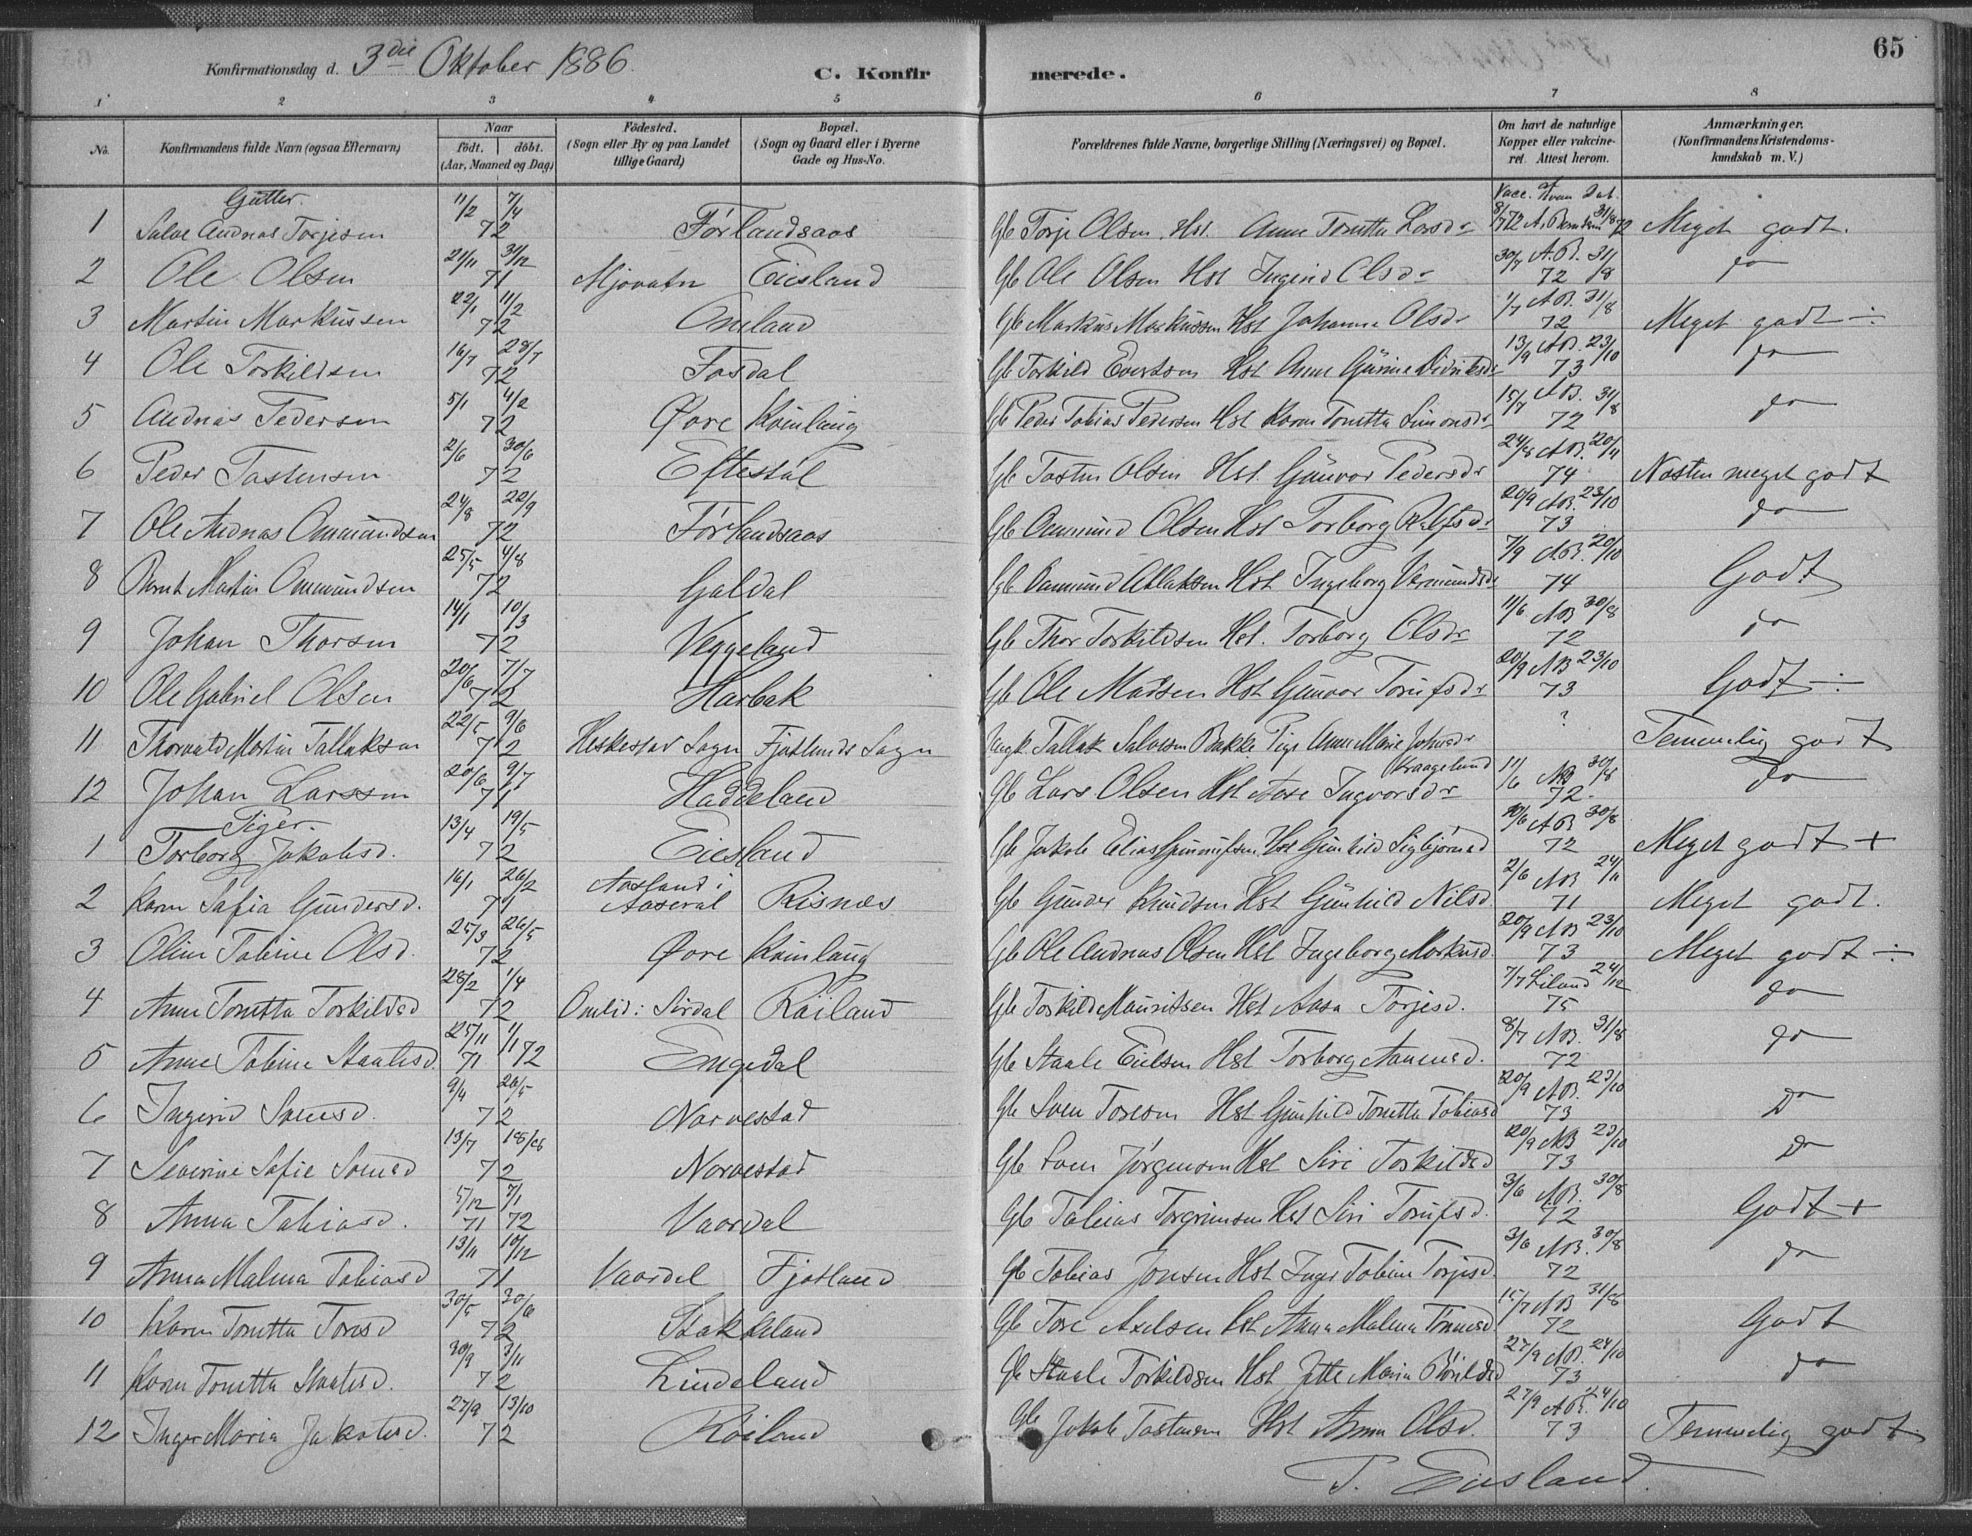 65
Konfirmationsdag d. 3die Oktober 1886.
C. Konfirmerede.
1 2 3 4 5 6 7 8
No. Konfirmandens fulde Navn (ogsaa Efternavn) Naar født. døbt. (Aar, Maaned og Dag) Fødested. (Sogn eller By og paa Landet tillige Gaard) Bopæl. (Sogn og Gaard eller i Byerne Gade og Hus-No. Forældrenes fulde Navne, borgerlige Stilling (Næringsvei) og Bopæl. Om havt de naturlige Kopper eller vakcineret. Attest herom. Anmærkninger. (Konfirmandens Kristendomskundskab m. V.)
Gutter.
1 Salve Andreas Torjesen 11/2 7/4 72 Førlandsaas Gb Torje Olsen Hst. Anne Tonette Larsdr 8/7 72 31/8 72 Meget godt.
2 Ole Olsen 21/11 3/12 71 Mjovatn Eiesland Gb Ole Olsen Hst Ingerid Olsdr 30/7 A.B. 31/8 72 do
3 Martin Markussen 22/1 11/2 72 Omland Gb Markus Markussen Hst Johanne Olsdr 1/7 A.B. 31/8 72 Meget godt ÷
4 Ole Torkildsen 16/7 28/7 72 Fosdal Gb Torkild Evertsen Hst Anne Gurine Didriksdr 13/9 A.B. 23/10 73 do
5 Andreas Pedersen 5/1 4/2 72 Øvre Kvinlaug Gb Peder Tobias Pedersen Hst Karen Tonette Simonsdr 15/7 A.B. 31/8 72 do
6 Peder Tostensen 2/6 30/6 72 Eftestøl Gb Tosten Olsen Hst. Gunvor Pedersdr 24/8 A.B. 20/11 74 Næsten meget godt
7 Ole Andreas Ommundsen 24/8 22/9 72 Førlandsaas Gb Ommund Olsen Hst Torborg 20/9 A.B. 23/10 73 do
8 Bernt Martin Ommundsen 25/5 4/8 72 Galdal Gb Ommund Atlaksen Hst Ingeborg Vermundsdr 7/9 A.B. 20/10 74 Godt
9 Johan Thorsen 14/1 10/3 72 Veggeland Gb Thor Torkildsen Hst. Torborg Olsdr 11/6 AB 30/8 72 do
10 Ole Gabriel Olsen 20/6 7/7 72 Harbak Gb Ole Madsen Hst Gunvor Torufsdr 20/9 AB 23/10 73 Godt ÷
11 Thorvald Martin Tallaksen 22/5 9/6 72 Heskestad Sogn Fjotlands Sogn Ungk. Tallak Salvesen Bakke Pige Anne Marie Johnsdr Kraageland ? Temmelig godt
12 Johan Larssen 20/6 9/7 71 Haddeland Gb Lars Olsen Hst Aase Ingvorsdr 11/6 AB 30/8 72. do
Piger.
1 Torborg Jakobsd. 13/4 19/5 72 Eiesland Gb Jakob Elias Hst Gunhild Sigbjørnsd 10/6 AB 30/8 72 Meget godt +
2 Karen Sofia Gundersd. 16/1 26/2 71 Aasland i Aaseral Risnes Gb Gunder Knudsen Hst Gunhild Nilsd 2/6 AB 24/11 71 Meget godt.
3 Oline Tobine Olsd. 25/3 26/5 72 Øvre Kvinlaug Gb Ole Andreas Olsen Hst Ingeborg Markusd 20/9 AB 23/10 73 Meget godt ÷
4 Anne Tonetta Torkildsd 28/2 1/4 72 Omlid i Sirdal Røiland Gb Torkild Mauritsen Hst Aasa Torjesd. 7/7 Liland 24/12 75 do
5 Anne Tobine Staalesd. 25/11 71 1/1 72 Emgedal Gb Staale Eielsen Hst Torborg Aanensd. 8/7 A.B. 31/8 72 do
6 Ingerid Svensd. 9/4 26/5 72 Narvestad Gb Sven Toresen Hst Gunhild Tonetta Tobiasd 20/9 A.B. 23/10 73 Do
7 Severine Sofie Svensd 13/7 18/8 72 Norvestad Gb Sven Jørgensen Hst Siri Torkildsd 20/9 AB 23/10 73 Do
8 Anna Tobiasd. 5/12 71 7/1 72 Vaordal Gb Tobias Torgrimsen Hst Siri Torufsd. 3/6 A.B. 30/8 72 Godt +
9 Anna Malena Tobiasd 13/11 10/12 71 Vaordal Fjotland Gb Tobias Jonsen Hst Inger Tobine Torjesd. 3/6 A.B. 30/8 72 do
10 Karen Tonetta Toresd 30/5 30/6 72 Stakkeland Gb Tore Axelsen Hst Anna Malena Tønnesd 15/7 AB 31/8 72 Godt
11 Karen Tonetta Staalesd. 30/9 3/11 72 Lindeland Gb Staale Torkildsen Hst Jette Maria 27/9 A.B. 24/10 73 do
12 Inger Maria Jakobsd. 27/9 13/10 72 Røiland Gb Jakob Tostensen Hst Anna Olsd. 27/9 A.B. 24/10 73 Temmelig godt
T. Eiesland